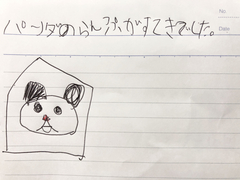 パンダのらんぷがすてきでした。
No.
Date